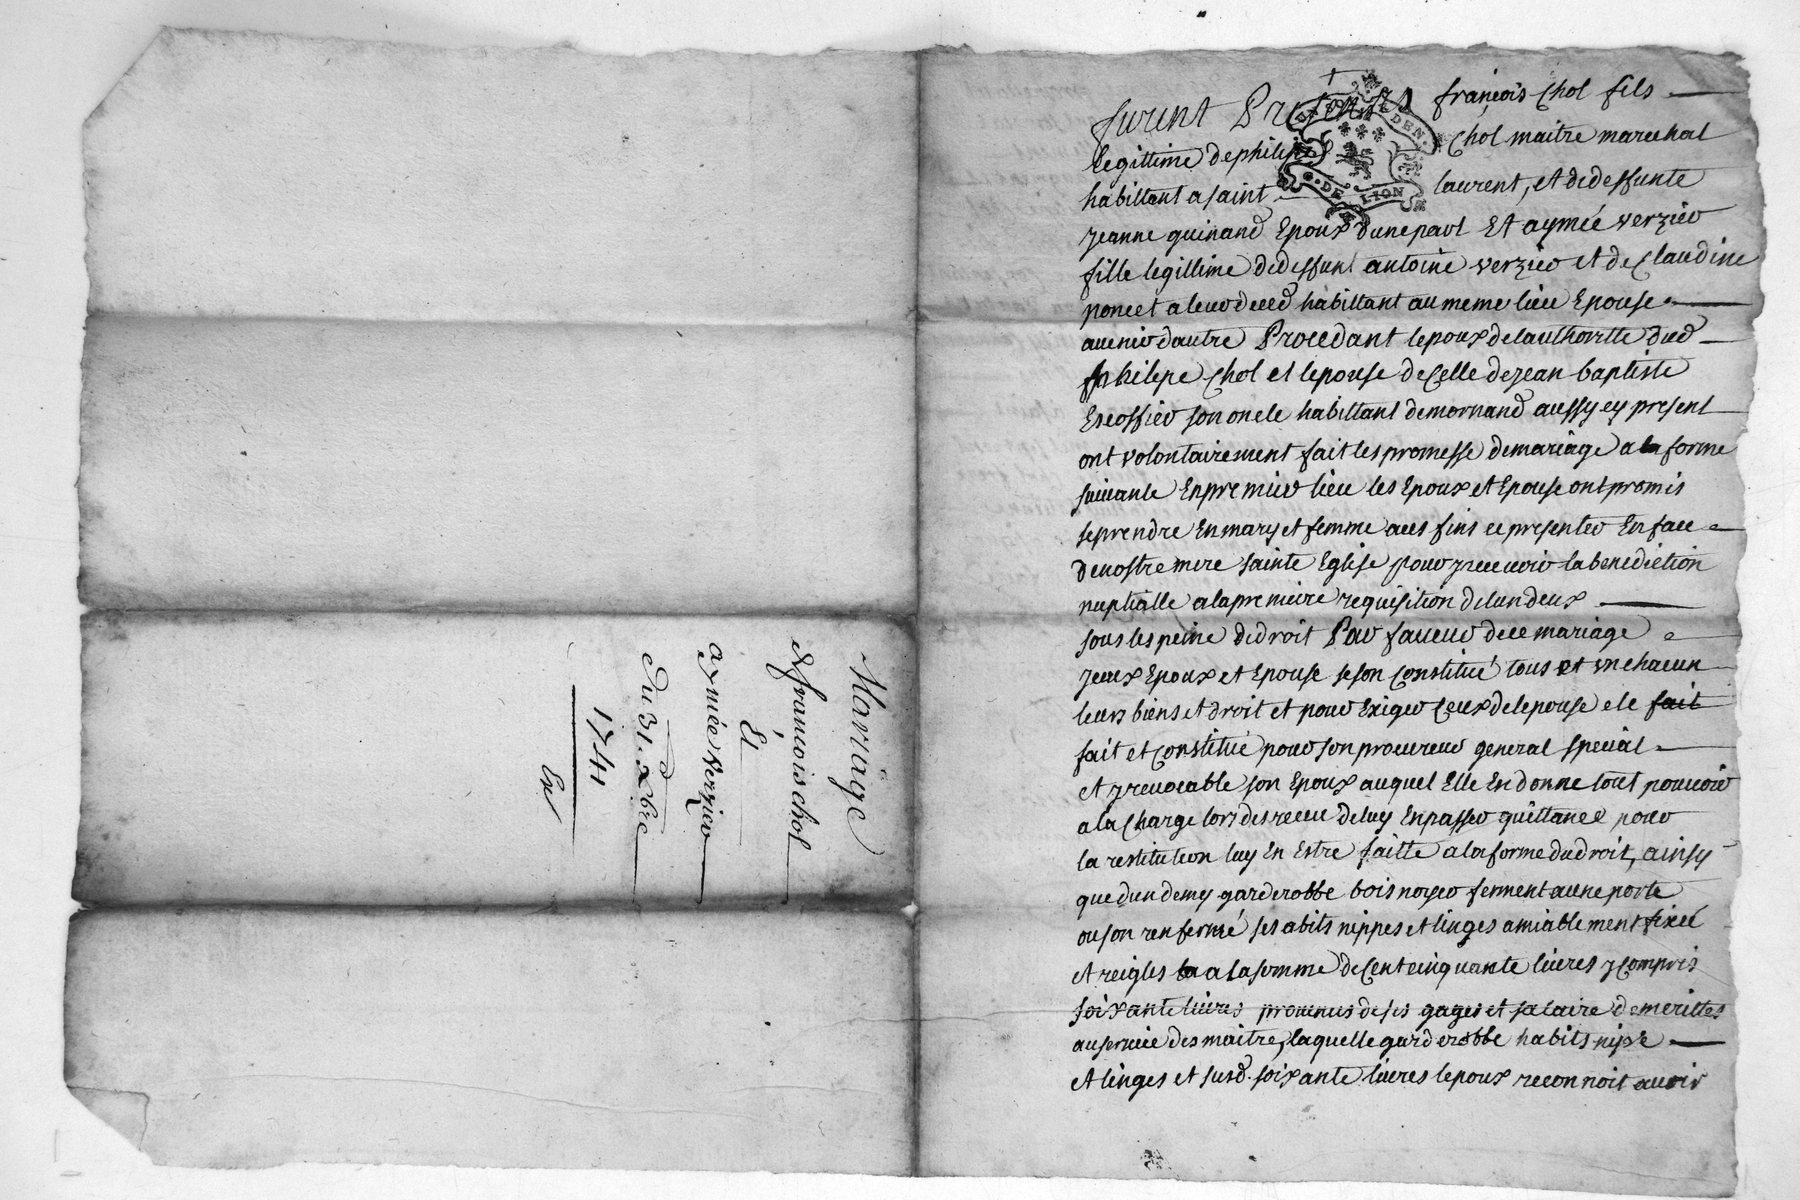 Mariage
de françois chol
Et
aymée Verzieu
du 31. xbre
1741
furent Presents françois Chol fils
legittime de philipe Chol maitre marechal
habittant a saint laurent, et de deffunte
jeanne quinand Epoux dune part Et aymée verzieu
fille legittime de deffunt antoine verzieu et de Claudine
poncet a leur deced habittant au meme lieu Epouse
avenir dautre Procedant lepoux de lauthoritte dud
philipe Chol et lepouse de Celle de jean baptiste
Escoffieu son oncle habittant de mornand aussy ey present
ont volontairement fait les promesse de mariage a la forme
suivante En premier lieu les Epoux et Epouse ont promis
se prendre En mary et femme a ces fins ce presenter En face
de nostre mere sainte Eglise pour y recevoir la benediction
nuptialle a la premiere requisition de lun deux
sous les peine de droit Par faveur de ce mariage
yceux Epoux et Epouse se son Constitué tous et vn chacun
leurs biens et droit et pour Exiger Ceux de lepouse ele fait
fait et Constitué pour son procureur general special
et yrevocable son Epoux auquel Elle En donne tout pouvoir
a la Charge lors des receu de luy En passer quittance pour
la restitution luy En Estre faitte a la forme du droit, ainsy
que dun demy garderobbe bois noyer ferment a une porte
ou son renfermé ses abits nippes et linges amiablement fixée
et reigles a la somme de Cent cinquante livres y Compris
soixante livres provenus de ses gages et salaire de merittes
au service des maitre, laquelle garderobbe habits nipe
et linges et susd. soixante livres lepoux reconnoit avoir
DE LION